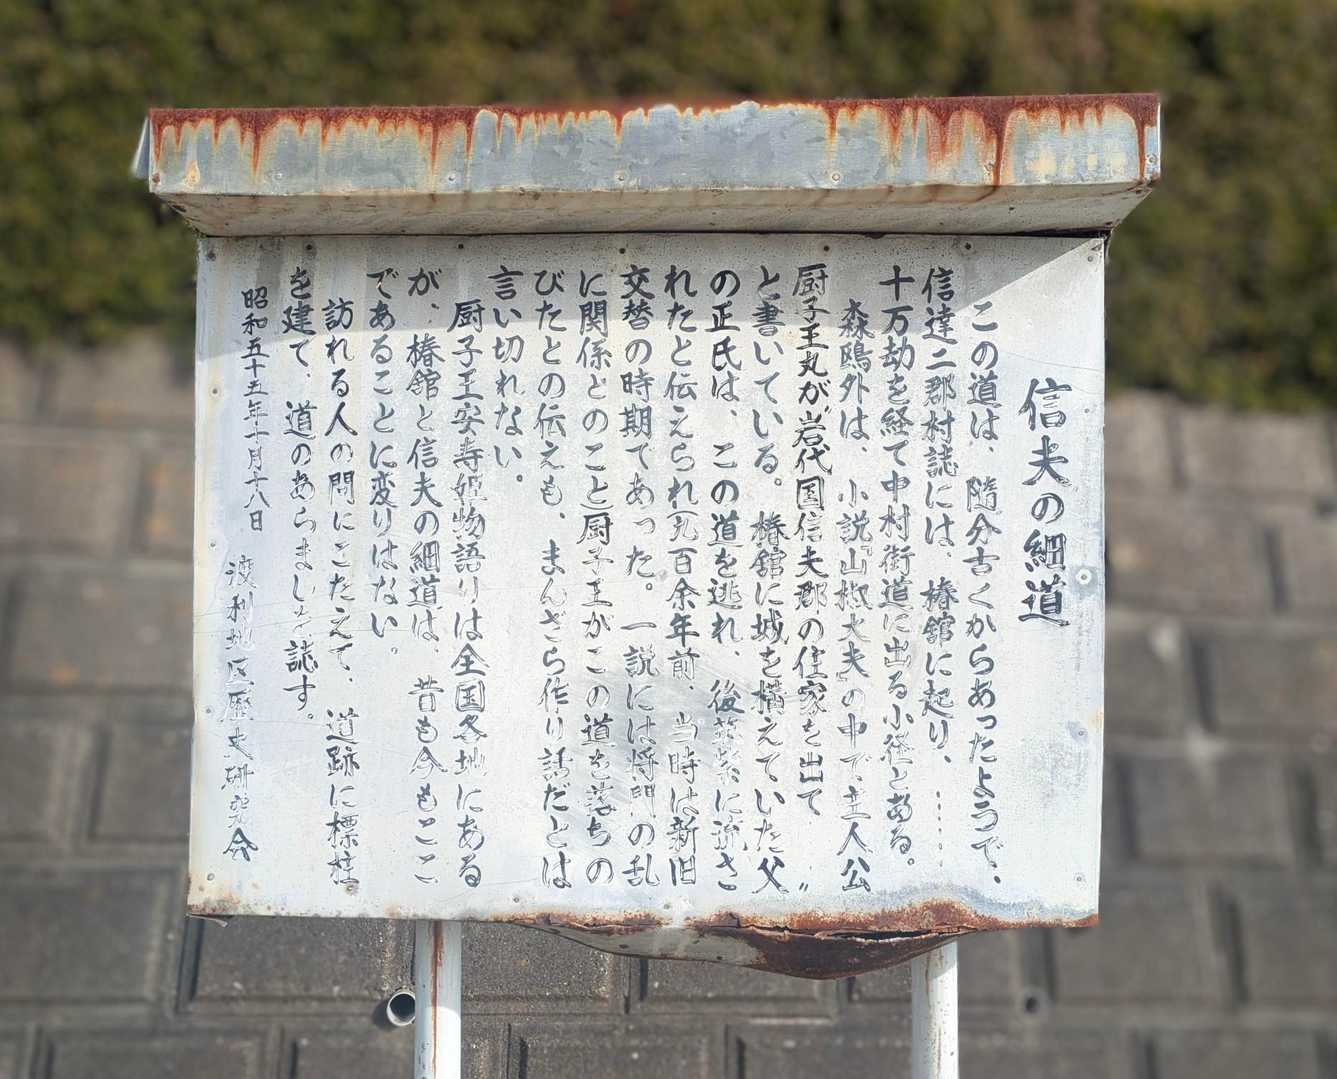 信夫の細道
この道は、随分古くからあったようで、
信達二郡村誌には、椿舘に起り、……
十万劫を経て中村街道に出る小径とある。
森鴎外は、小説『山椒大夫』の中で主人公
厨子王丸が"岩代国信夫郡の住家を出て"
と書いている。椿舘に城を構えていた父
の正氏は、この道を逃れ、後筑紫に流さ
れたと伝えられ(九百余年前、当時は新旧
交替の時期であった。一説には将門の乱
に関係とのこと)厨子王がこの道を落ちの
びたとの伝えも、まんざら作り話だとは
言い切れない。
厨子王安寿姫物語りは全国各地にある
が、椿舘と信夫の細道は、昔も今もここ
であることに変りはない。
訪れる人の問にこたえて、道跡に標柱
を建て、道のあらましを誌す。
昭和五十五年十月十八日
渡利地区歴史研究会